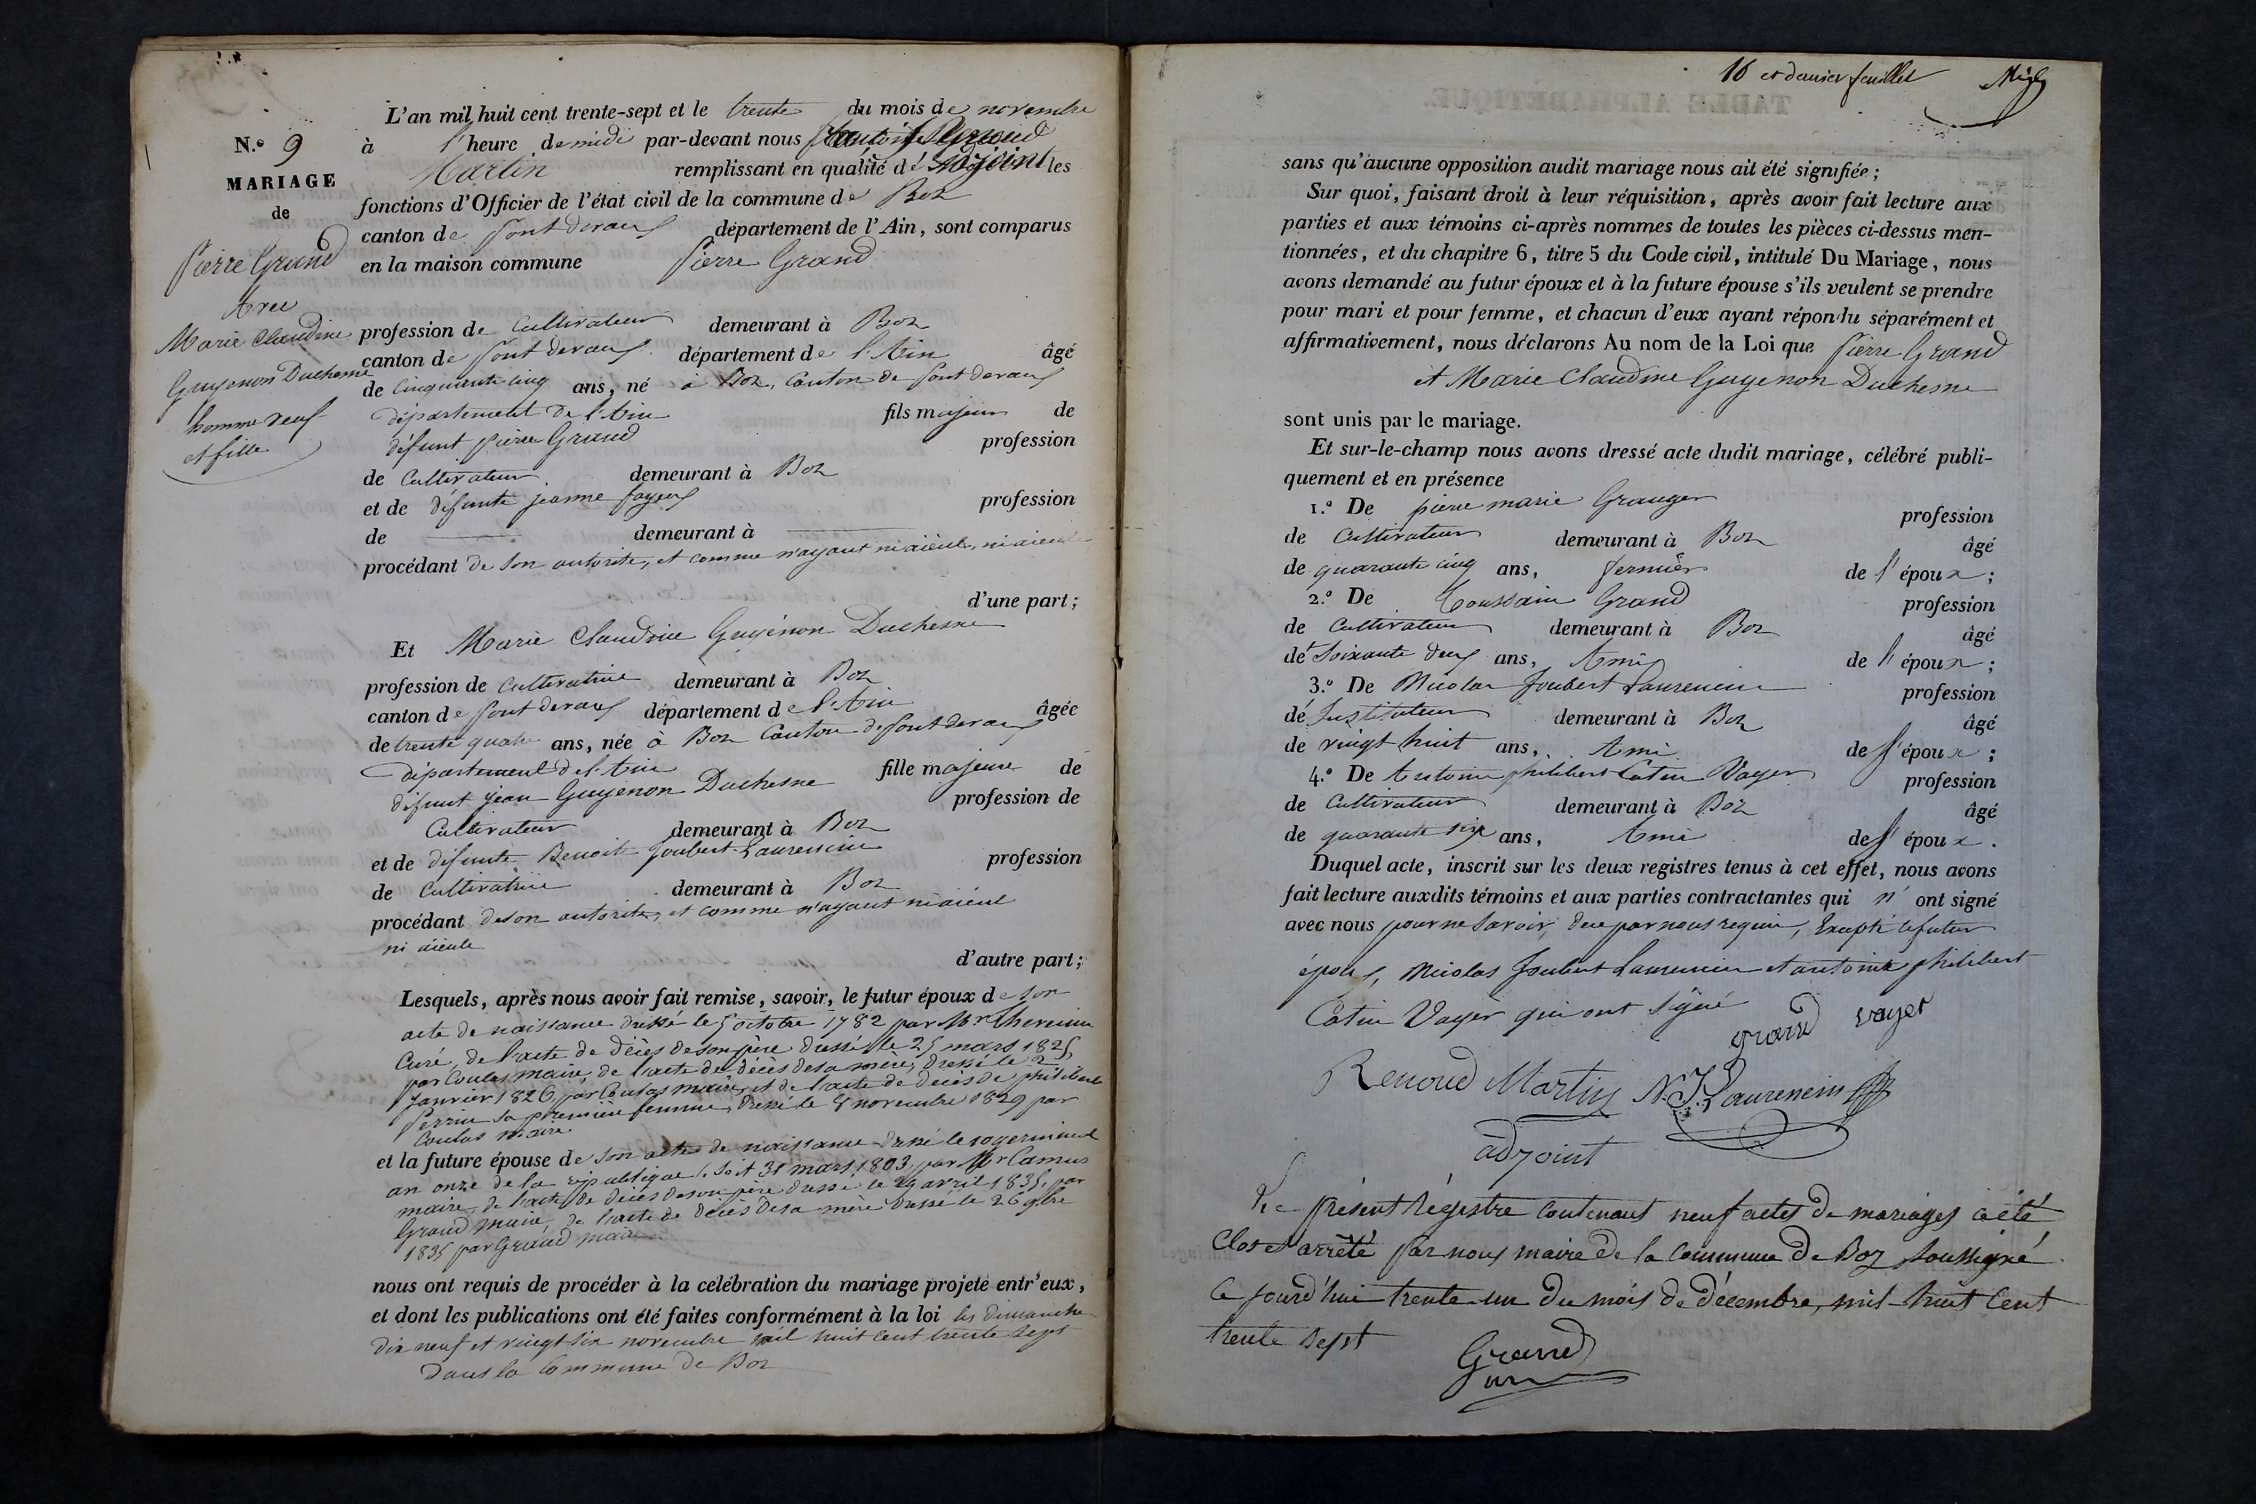 N.º 9
MARIAGE
de
Pierre Grand
Avec
Marie Claudine
Guyenon Duchesne
homme veuf
et fille
L'an mil huit cent trente-sept et le trente du mois de novembre
à l'heure de midi par-devant nous Renoud
Martin remplissant en qualité d'adjoint les
fonctions d'Officier de l'état civil de la commune de Boz
canton de pont devaux département de l'Ain, sont comparus
en la maison commune Pierre Grand
profession de Cultivateur demeurant à Boz
canton de pont devaux département de l'Ain âgé
de cinquante cinq ans, né à Boz, canton de pont devaux
département de l'Ain fils majeur de
défunt pierre Grand profession
de Cultivateur demeurant à Boz
et de défunte jeanne fayeux profession
de demeurant à
procédant de son autorité, et comme n'ayant ni aïeul, ni aieule
d'une part;
Et Marie Claudine Guyénon Duchesne
profession de cultivatrice demeurant à Boz
canton de pont devaux département de l'Ain âgée
de trente quatre ans, née à Boz Canton de pont devaux
département de l'Ain fille majeure de
défunt jean Guyenon Duchesne profession de
Cultivateur demeurant à Boz
et de défunte Benoite Joubert Laurencin profession
de Cultivatrice demeurant à Boz
procédant de son autorité, et comme n'ayant ni aïeul
ni aïeule
d'autre part;
Lesquels, après nous avoir fait remise, savoir, le futur époux de son
acte de naissance dressé le 5 octobre 1782 par Mr
Curé, de l'acte de décès de son père dressé le 25 mars 1825
par Coulas maire, de l'acte de décès de sa mère, dressé le 2
Janvier 1826 par Coulas maire, et de l'acte de décès de philiberte
Perrin sa première femme, dressé le 8 novembre 1829 par
Coulas maire.
et la future épouse de son acte de naissance dressé le 10 germinal
an onze de la république, soit 31 mars 1803, par Mr Camus
maire, de l'acte de décès de son père dressé le 29 avril 1835, par
Grand maire, de l'acte de décès de sa mère dressé le 26 9bre
1835 par Grand maire
nous ont requis de procéder à la celébration du mariage projeté entr'eux,
et dont les publications ont été faites conformément à la loi les dimanche
dix neuf et vingt six novembre mil huit cent trente sept
dans la Commune de Boz
16 et dernier feuillet
sans qu'aucune opposition audit mariage nous ait été signifiée;
Sur quoi, faisant droit à leur réquisition, après avoir fait lecture aux
parties et aux témoins ci-après nommes de toutes les pièces ci-dessus men-
tionnées, et du chapitre 6, titre 5 du Code civil, intitulé Du Mariage, nous
avons demandé au futur époux et à la future épouse s'ils veulent se prendre
pour mari et pour femme, et chacun d'eux ayant répondu séparément et
affirmativement, nous déclarons Au nom de la Loi que Pierre Grand
et Marie Claudine Guyenon Duchesne
sont unis par le mariage.
Et sur-le-champ nous avons dressé acte dudit mariage, célébré publi-
quement et en présence
1.º De pierre marie Granger profession
de Cultivateur demeurant à Boz âgé
de quarante cinq ans, fermier de l'époux;
2.º De Toussain Grand profession
de Cultivateur demeurant à Boz âgé
de Soixante deux ans, Ami de l'époux;
3.º De Nicolas Joubert Laurencin profession
de Instituteur demeurant à Boz âgé
de vingt huit ans, Ami de l'époux;
4.º De Antoine philibert Catin Vayer profession
de Cultivateur demeurant à Boz âgé
de quarante six ans, Ami de l'époux.
Duquel acte, inscrit sur les deux registres tenus à cet effet, nous avons
fait lecture auxdits témoins et aux parties contractantes qui n' ont signé
avec nous pour ne savoir, de ce par nous requis, Excepté le futur
époux, Nicolas Joubert Laurencin et antoine philibert
Catin Vayer qui ont signé
grand vayer
Renoud Martin N. J. Laurencin
adjoint
Le présent Régistre contenant neuf actes de mariages a été
Clos et arrêté par nous maire de la Commune de Boz soussigné
Ce jourd'hui trente un du mois de décembre, mil huit Cent
trente sept
Grand